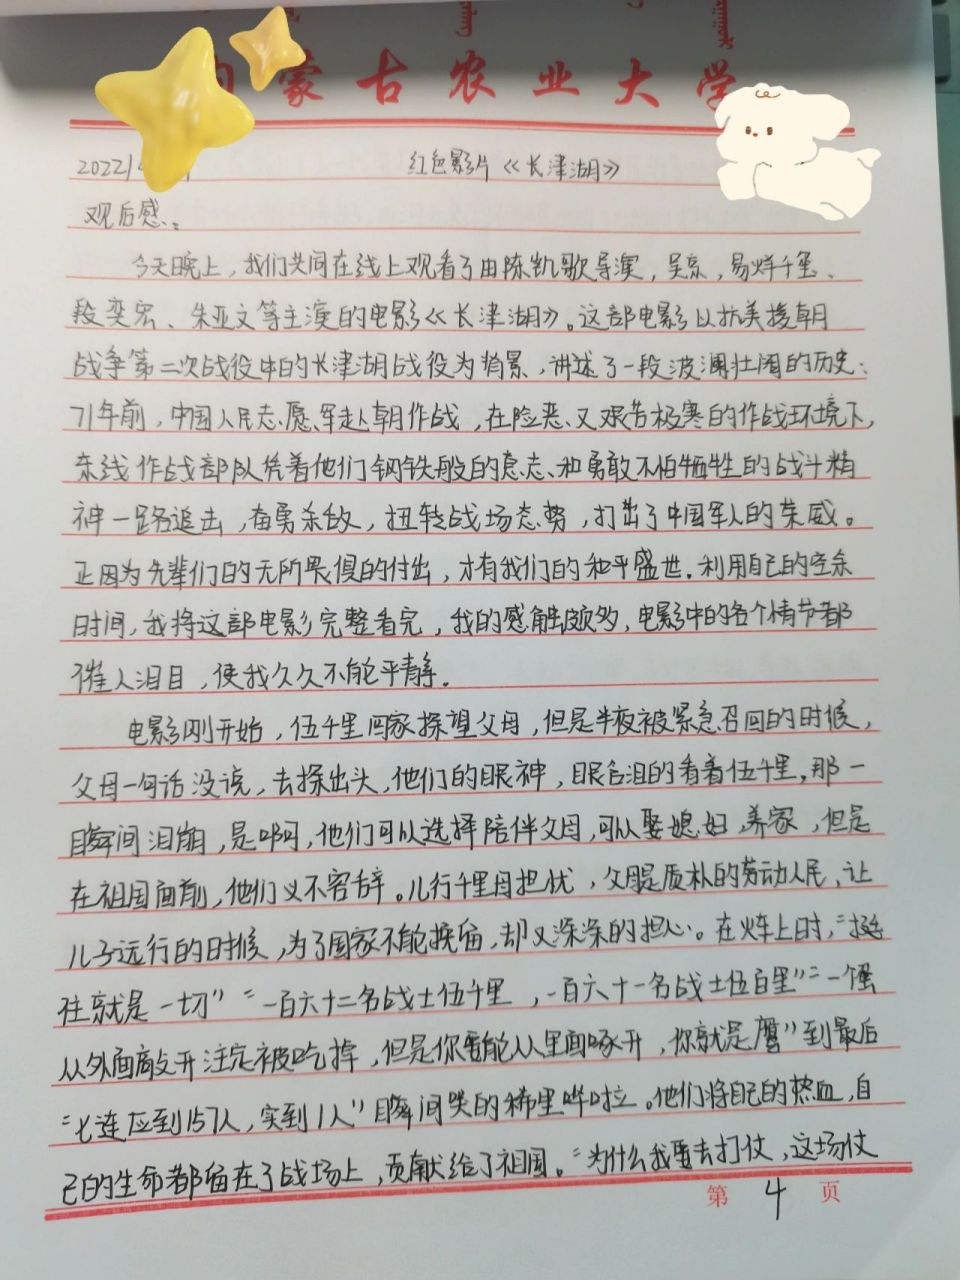 蒙古农业大学
2022/
红色影片《长津湖》
观后感。
今天晚上，我们共同在线上观看了由陈凯歌导演，吴京，易烊千玺、
段奕宏、朱亚文等主演的电影《长津湖》。这部电影以抗美援朝
战争第二次战役中的长津湖战役为背景，讲述了一段波澜壮阔的历史：
71年前，中国人民志愿军赴朝作战，在险恶又艰苦极寒的作战环境下，
东线作战部队凭着他们钢铁般的意志和勇敢不怕牺牲的战斗精
神一路追击，奋勇杀敌，扭转战场态势，打出了中国军人的荣威。
正因为先辈们的无所畏惧的付出，才有我们的和平盛世。利用自己的空余
时间，我将这部电影完整看完，我的感触颇多，电影中的各个情节都
催人泪目，使我久久不能平静。
电影刚开始，伍千里回家探望父母，但是半夜被紧急召回的时候，
父母一句话没说，去探出头，他们的眼神，眼含泪的看着伍千里，那一
瞬间泪崩，是啊，他们可以选择陪伴父母，可以娶媳妇，养家，但是
在祖国面前，他们义不容辞。儿行千里母担忧，父母是质朴的劳动人民，让
儿子远行的时候，为了国家不能挽留，却又深深的担心。在火车上时，“挺
住就是一切”“一百六十二名战士伍千里，一百六十一名战士伍百里”“一个蛋
从外面敲开注定被吃掉，但是你要能从里面啄开，你就是鹰”到最后
“七连应到157人，实到1人”瞬间哭的稀里哗啦。他们将自己的热血，自
己的生命都留在了战场上，贡献给了祖国。“为什么我要去打仗，这场仗
第 4 页